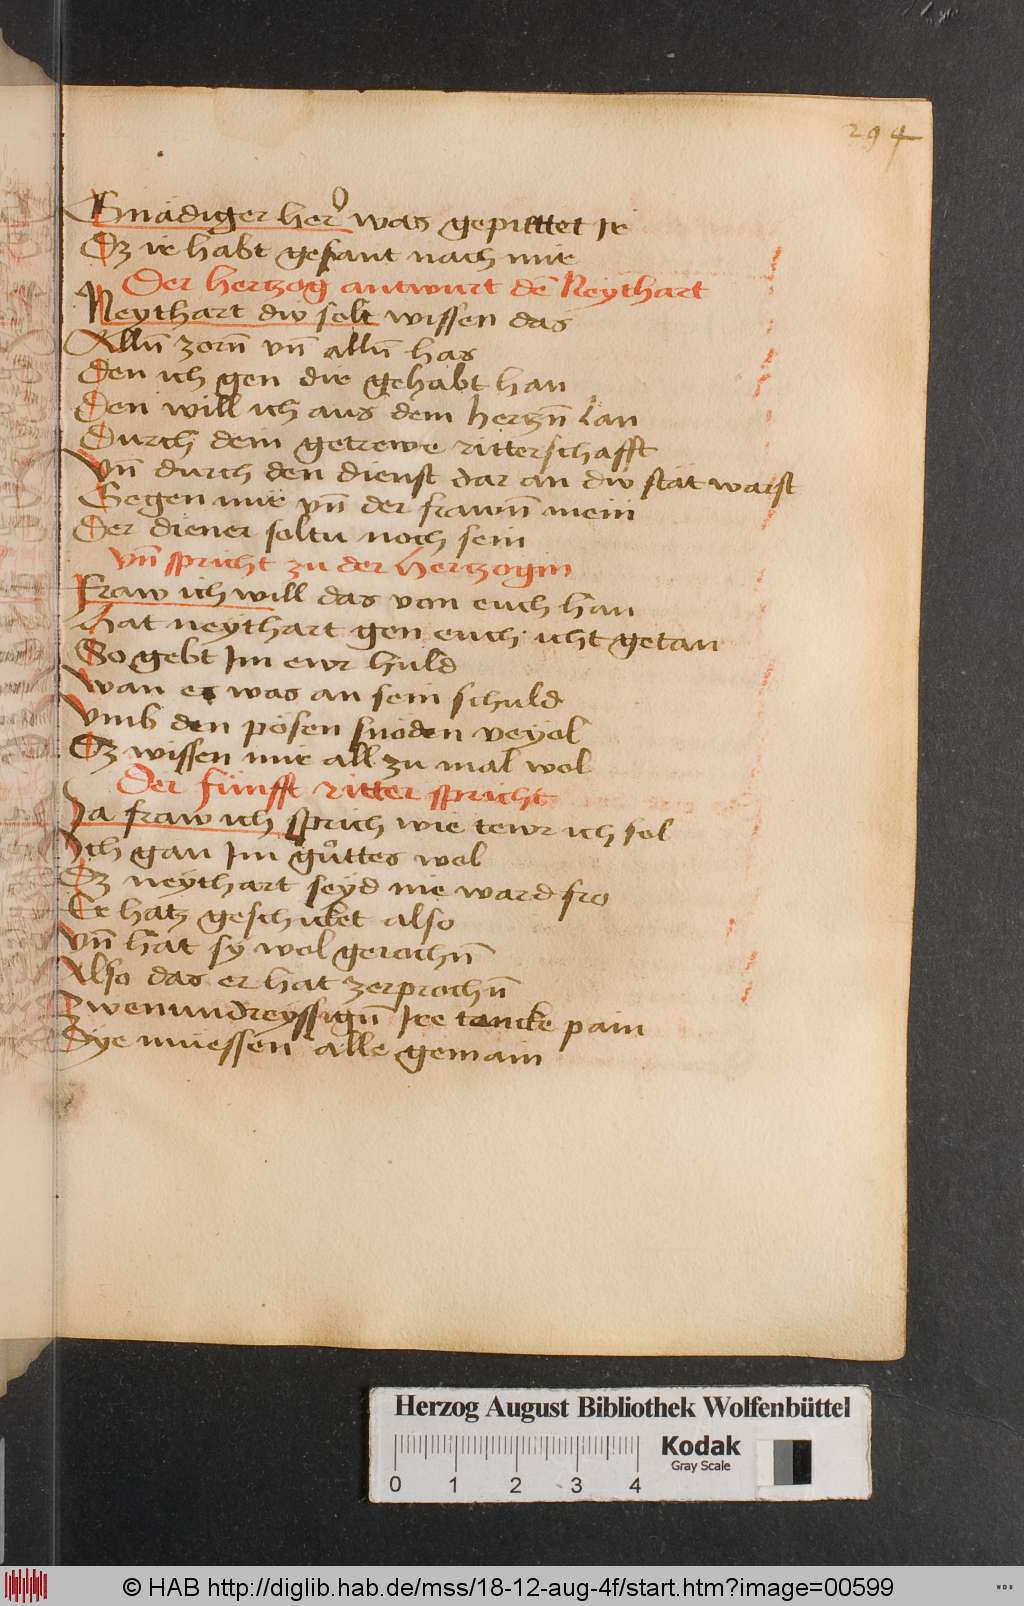 294
Gnädiger her was gepittet Ir
Dz ir habt gesant nach mir
Der hertzog antwurt dē Neythart
Neythart dw solt wissen das
Allñ zorñ vñ allñ has
Den ich gen dir gehabt han
Den will ich aus dem hertzñ lan
Durch dein getrewe ritterschafft
Vñ durch den dienst dar an dw stät warst
Gegen mir vñ der frawñ mein
Der diener soltu noch sein
Vñ spricht zu der hertzogin
Fraw ich will das von euch han
Hat neythart gen euch icht getan
So gebt Im ewr huld
Wan es was an sein schuld
Vmb den pösen snöden veyol
Dz wissen mir all zu mal wol
Der fünfft ritter spricht
Ja fraw ich sprich wie tewr ich sol
Ich gan Im guttes wol
Dz neythart seyd nie ward fro
Er hatz geschicket also
Vñ hat sy wol gerochñ
Also das er hat zerprochñ
Zwenundreyssigñ Ire tancke pain
Dye müessen alle gemain
Herzog August Bibliothek Wolfenbüttel
Kodak
Gray Scale
0 1 2 3 4
© HAB http://diglib.hab.de/mss/18-12-aug-4f/start.htm?image=00599
WDB